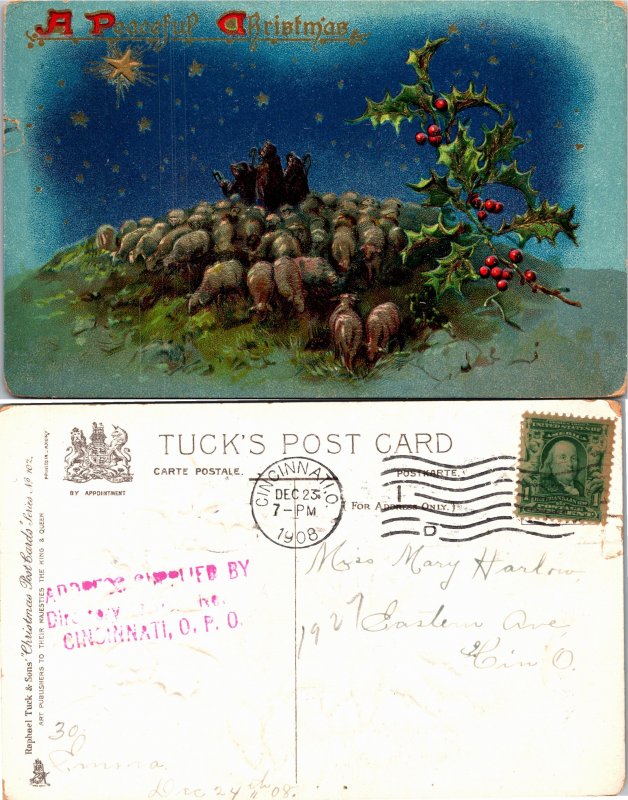 A Peaceful Christmas
TUCK'S POST CARD
CARTE POSTALE.
POSTKARTE.
BY APPOINTMENT
(FOR ADDRESS ONLY.)
CINCINNATI, O.
DEC 23
7-PM
1908
UNITED STATES OF
AMERICA
ADDRESS SUPPLIED BY
CINCINNATI, O. P. O.
Miss Mary Harlow
1927 Eastern Ave
Cin O.
Raphael Tuck & Sons' "Christmas" Post Cards Series No 102.
ART PUBLISHERS TO THEIR MAJESTIES THE KING & QUEEN
30
Emma
Dec 24th 08.